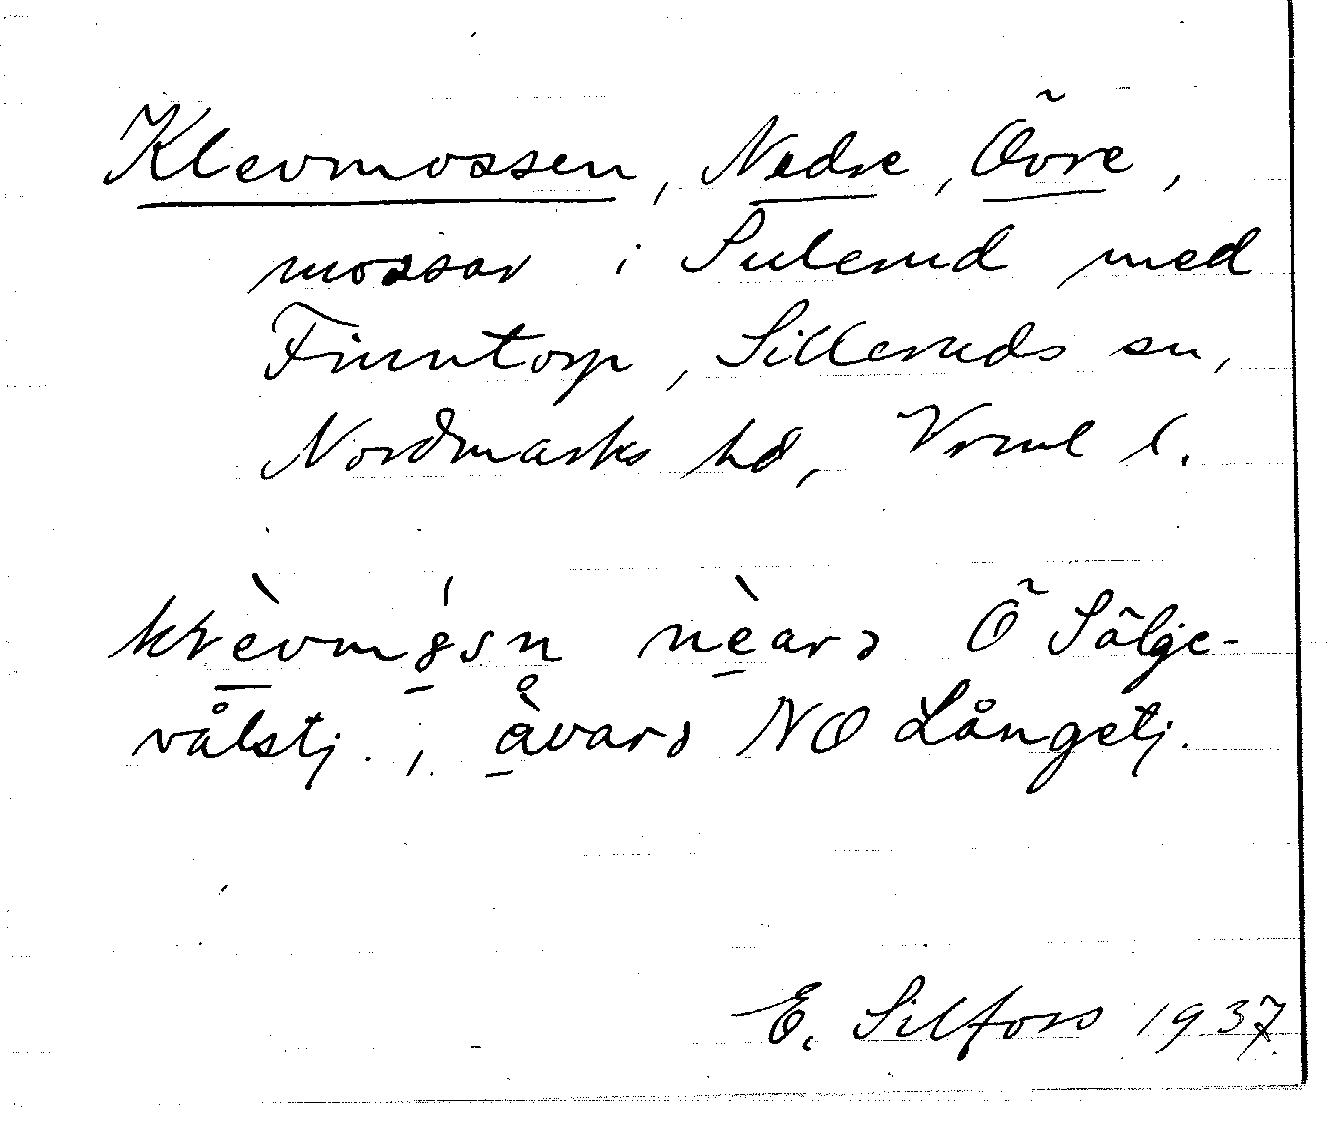 Klevmossen, Nedre, Övre,
mossar i Sulerud med
Finntorp, Silleruds sn,
Nordmarks hd, Vrml l.
nèarə Ö Sölje-
vålstj., åvarə NO Långetj.
E. Silfors 1937.